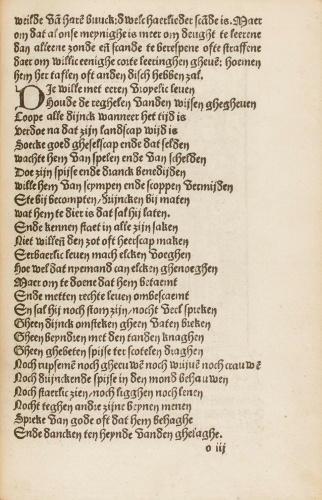 weilde vā harē buuck; dwelc haerlieder scāde is. Maer
om dat al onse meynighe is meer om deught te leerene
dan alleene zonde eñ scande te berespene ofte straffene
daer om willic eenighe corte leeringhen ghevē: hoemen
hem ter taflen oft anden disch hebben zal.
DIe wille met eeren vroyelic leuen
Houde de reghelen vanden wijsen ghegheuen
Coope alle dijnck wanneer het tijd is
verdoe na dat zijn landscap wijd is
Soecke goed gheselscap ende dat selden
wachte hem van spelen ende van schelden
Doe zijn spijse ende dranck benedijden
wille hem van scympen ende scoppen vermijden
Ste bij becompten, drijncken bij maten
wat hem te dier is dat sal hij laten.
Ende kennen staet in alle zijn saken
Niet willeñ den zot oft heerscap maken
Eerbaerlic leuen mach elcken voeghen
Hoe wel dat nyemand can elckē ghenoeghen
Maer om te doene dat hem betaemt
Ende metten rechte leuen ombescaemt
En sal hij noch stom zijn, nocht veel spreken
Gheen dijnck omsteken gheen vaten breken
Gheen beyndren met den tanden knaghen
Gheen ghebeten spijse ter scotelen draghen
Noch rupsemē noch gheeuwē noch wrijuē noch crauwē
Noch drijnckende spijse in den mond behauwen
Noch staerlic zien, noch ligghen noch lenen
Nocht teghen andre zijne beynen menen
Spreke van gode oft dat hem behaghe
Ende dancken ten heynde vanden ghelaghe.
o iij